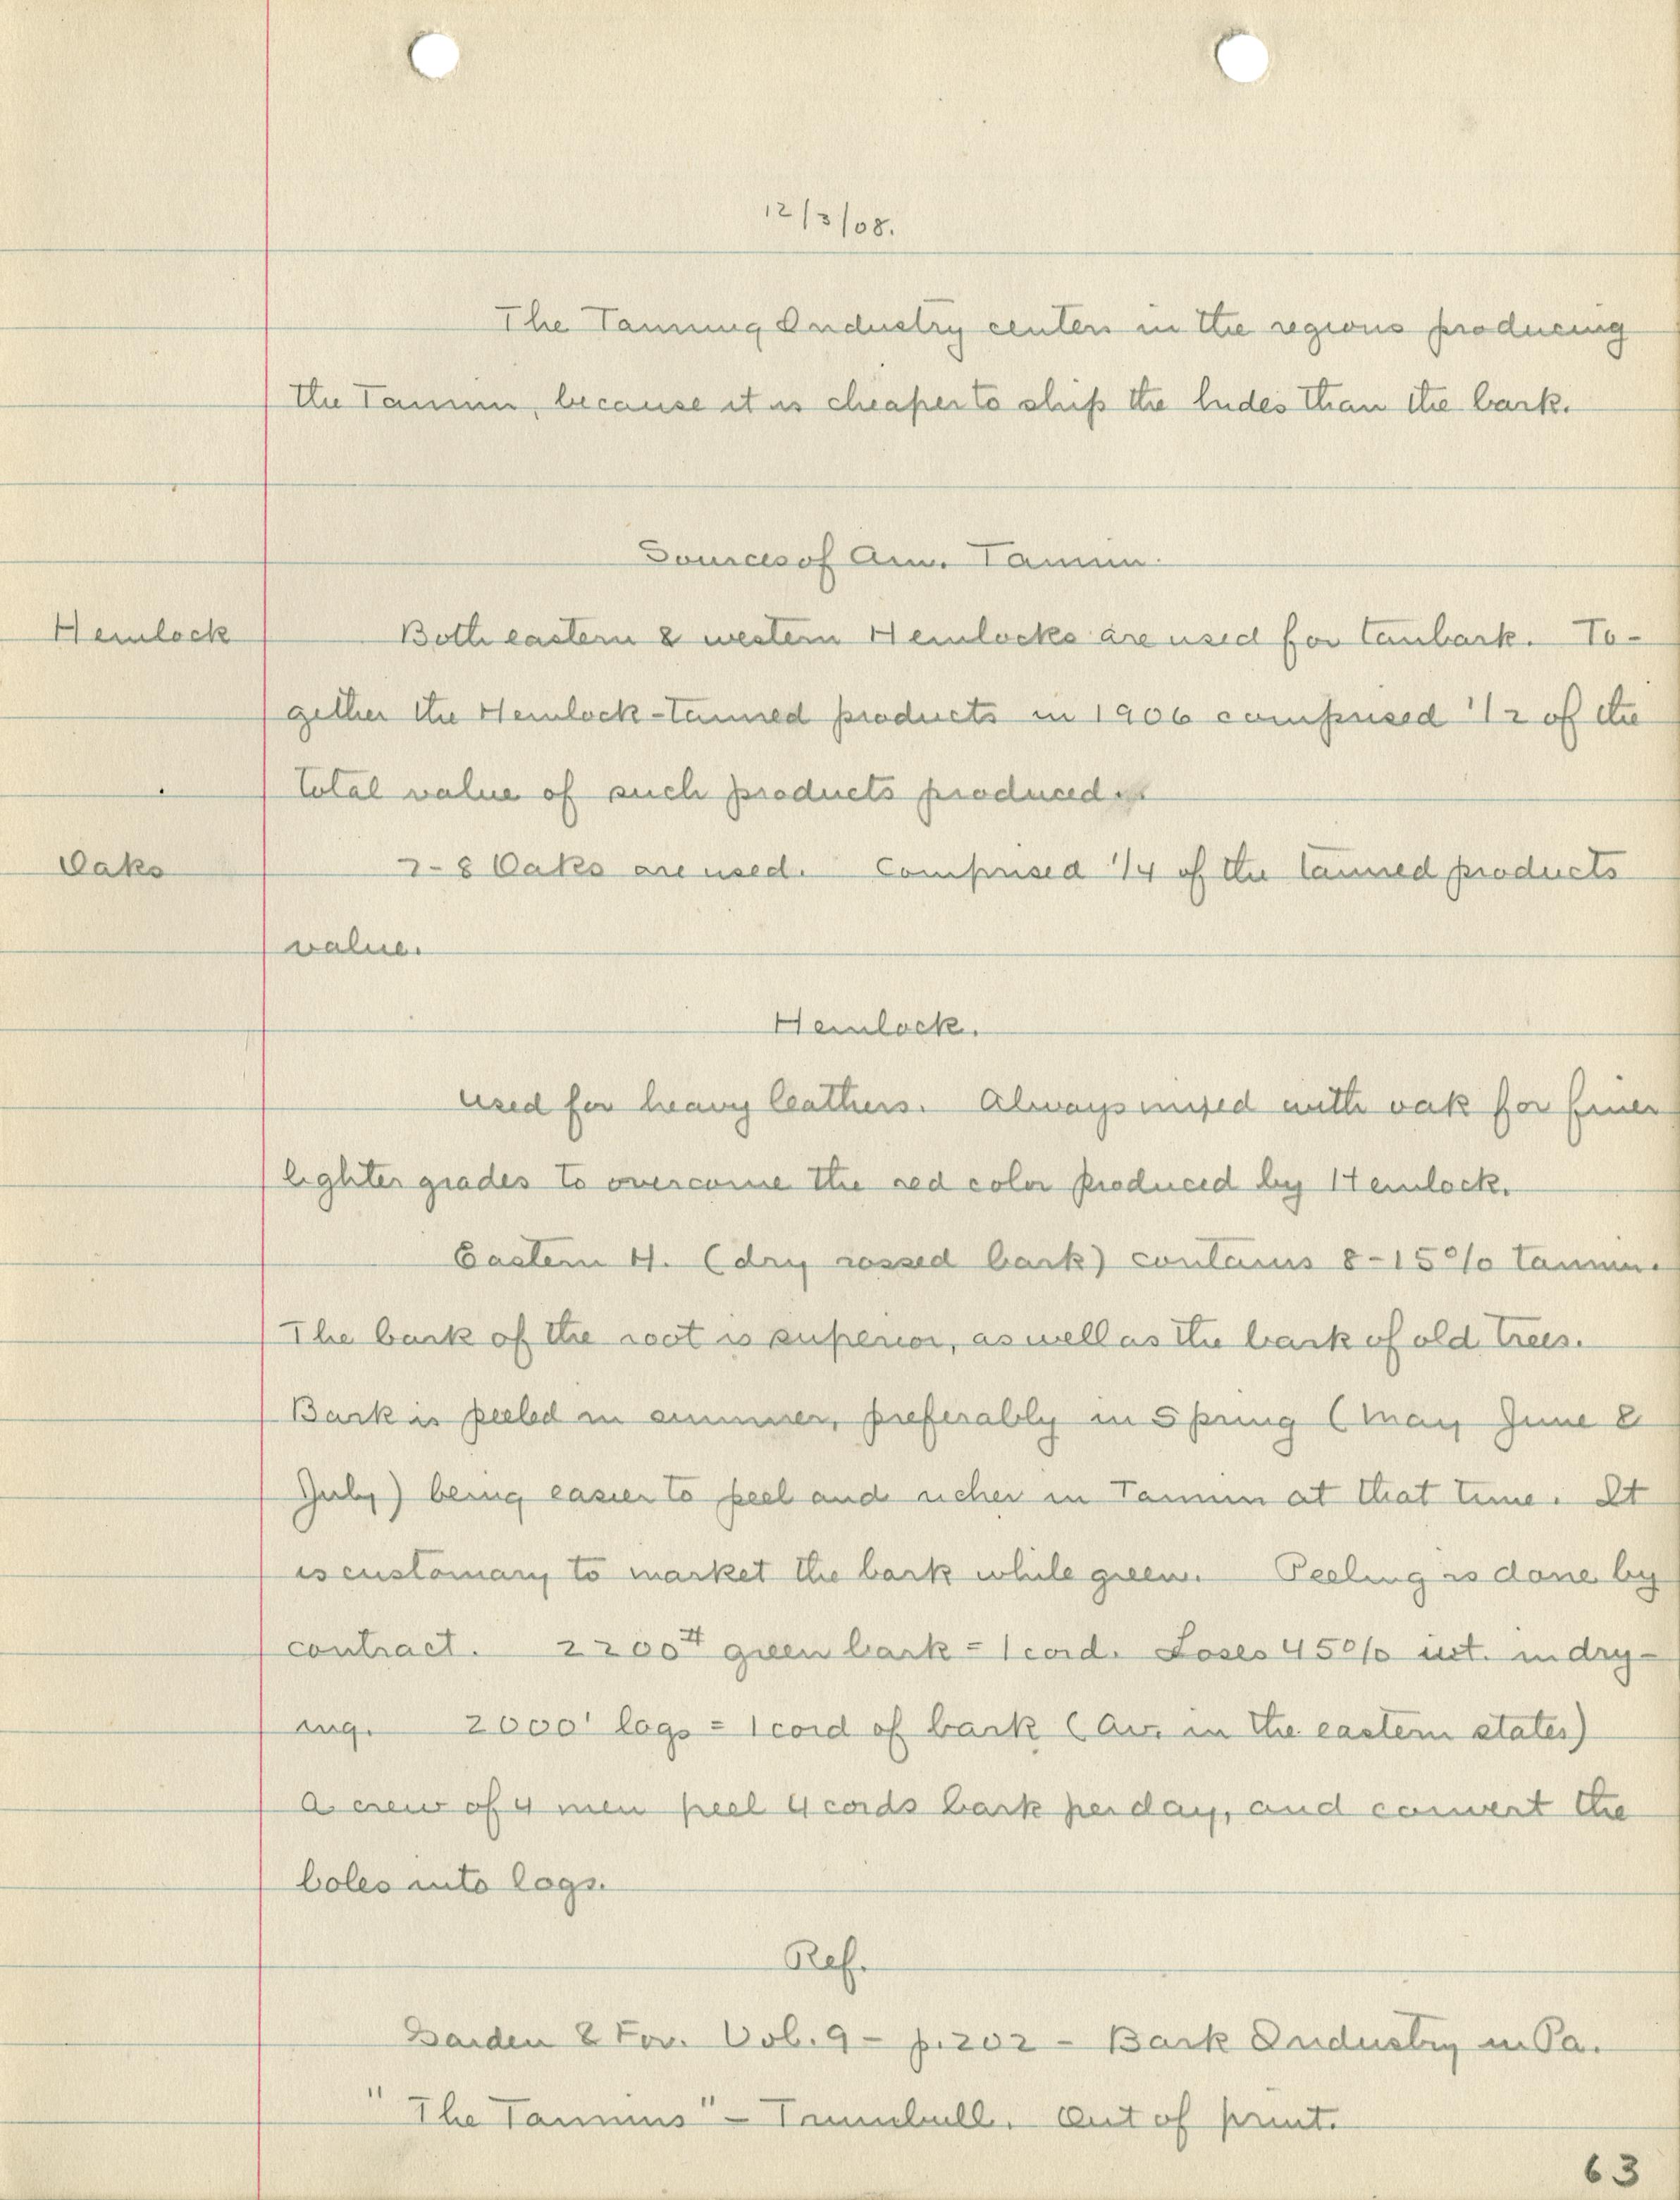 12/3/08.
The Tanning Industry centers in the regions producing
the Tannin, because it is cheaper to ship the hides than the bark.
Sources of Am. Tannin.
Hemlock
Both eastern & western Hemlocks are used for tanbark. To-
gether the Hemlock-tanned products in 1906 comprised 1/2 of the
total value of such products produced.
Oaks
7-8 Oaks are used. Comprised 1/4 of the tanned products
value.
Hemlock.
Used for heavy leathers. Always mixed with oak for finer
lighter grades to overcome the red color produced by Hemlock.
Eastern H. (dry rossed bark) contains 8-15% tannin.
The bark of the root is superior, as well as the bark of old trees.
Bark is peeled in summer, preferably in Spring (May June &
July) being easier to peel and richer in Tannin at that time. It
is customary to market the bark while green. Peeling is done by
contract. 2200# green bark = 1 cord. Loses 45% wt. in dry-
ing. 2000' logs = 1 cord of bark (Av. in the eastern states)
A crew of 4 men peel 4 cords bark per day, and convert the
boles into logs.
Ref.
Garden & For. Vol. 9 - p. 202 - Bark Industry in Pa.
"The Tannins" - Trumbull. Out of print.
63